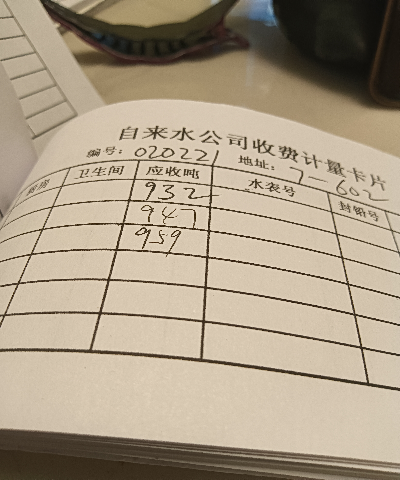 自来水公司收费计量卡片
编号：020221 地址：7-602
厨房 卫生间 应收吨 水表号 封铅号
932
947
959